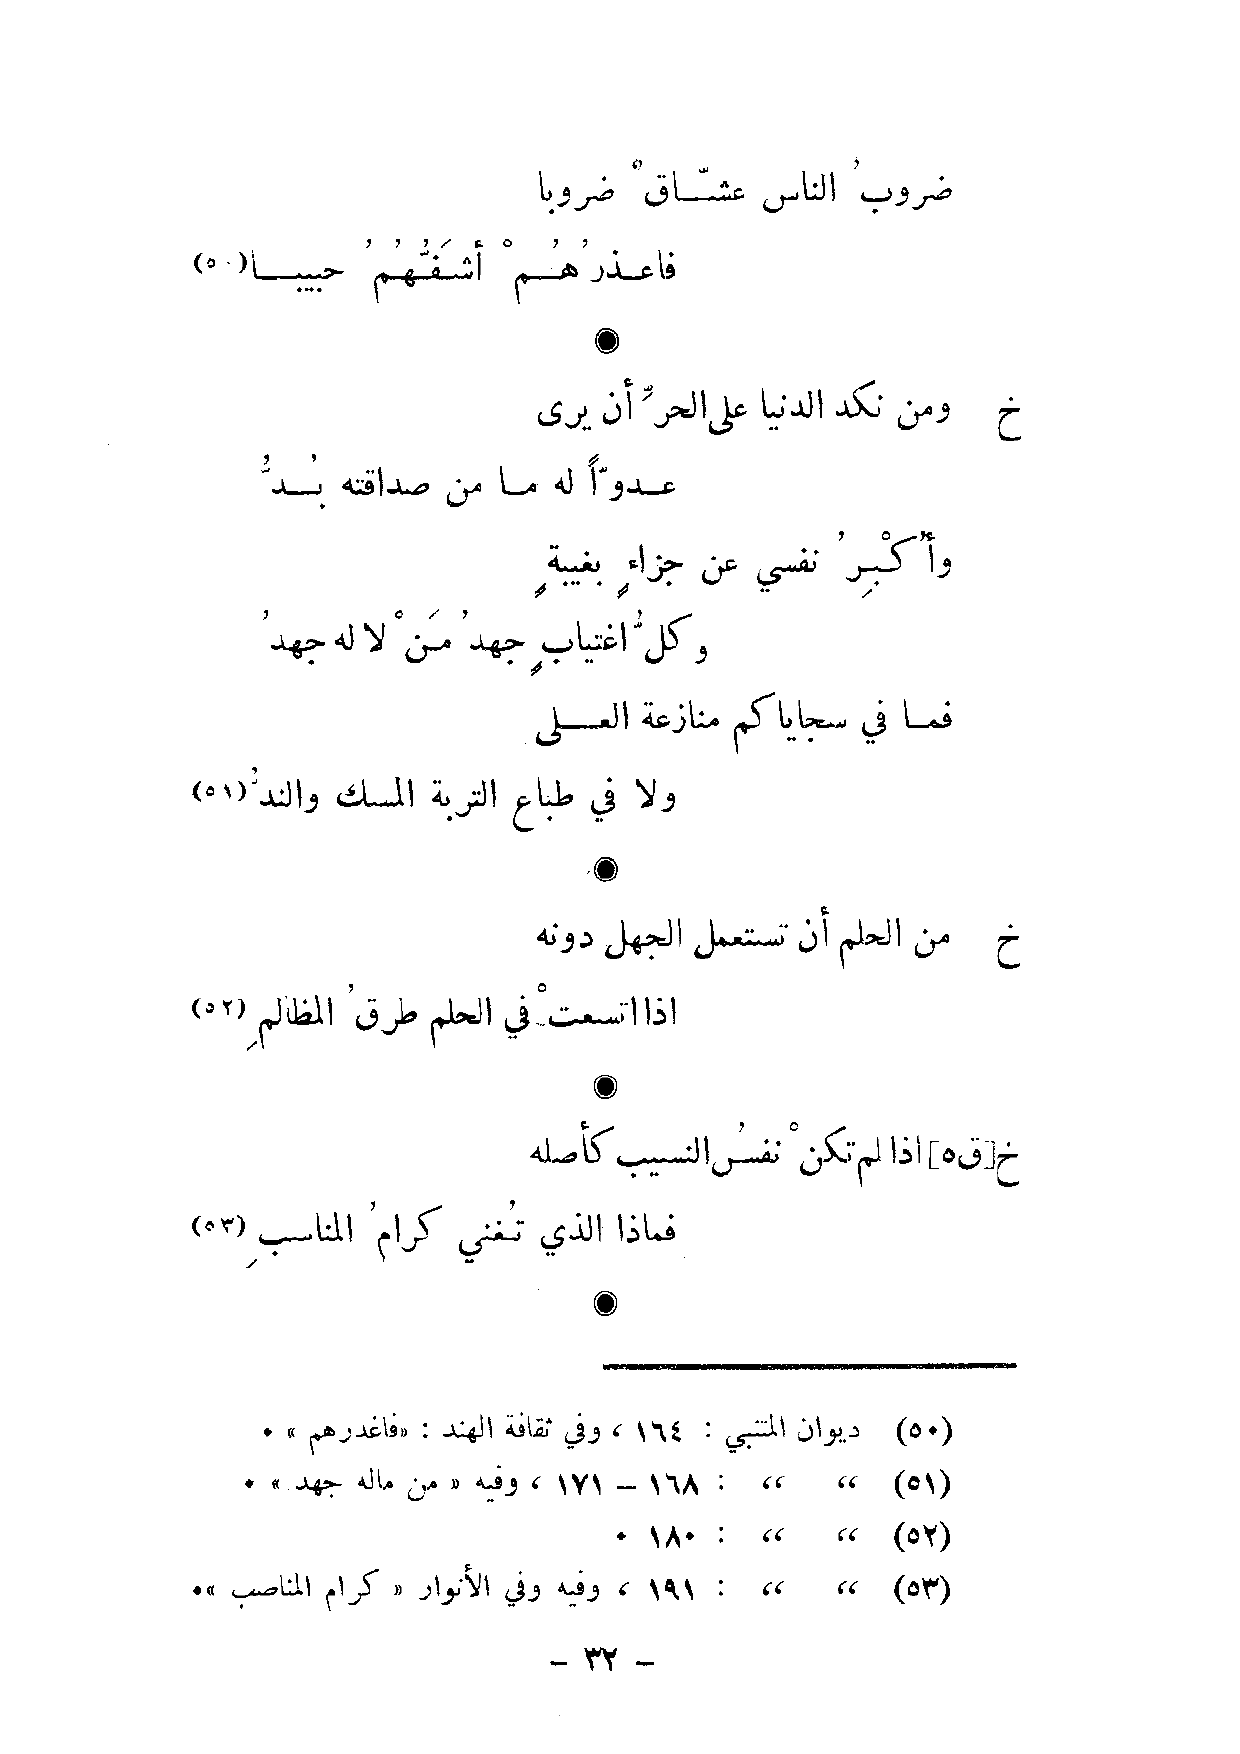 ضروبُ الناس عشّاقٌ ضروبا
فاعذرُهُمْ أشَفُّهُمُ حبيبا (٥٠)
خ ومن نكد الدنيا على الحرِّ أن يرى
عدوّاً له ما من صداقته بُدُّ
وأُكْبِرُ نفسي عن جزاءٍ بغيبةٍ
وكلُّ اغتيابٍ جهدُ مَنْ لا له جهدُ
فما في سجاياكم منازعة العلى
ولا في طباع التربة المسك والندُّ (٥١)
خ من الحلم أن تستعمل الجهل دونه
اذا اتسعتْ في الحلم طرقُ المظالمِ (٥٢)
خ [ق٥] اذا لم تكنْ نفسُ النسيب كأصله
فماذا الذي تُغني كرامُ المناسبِ (٥٣)
(٥٠) ديوان المتنبي : ١٦٤ ، وفي ثقافة الهند : «فاغدرهم » .
(٥١) “ “ : ١٦٨ – ١٧١ ، وفيه « من ماله جهد » .
(٥٢) “ “ : ١٨٠ .
(٥٣) “ “ : ١٩١ ، وفيه وفي الأنوار « كرام المناصب ».
– ٣٢ –